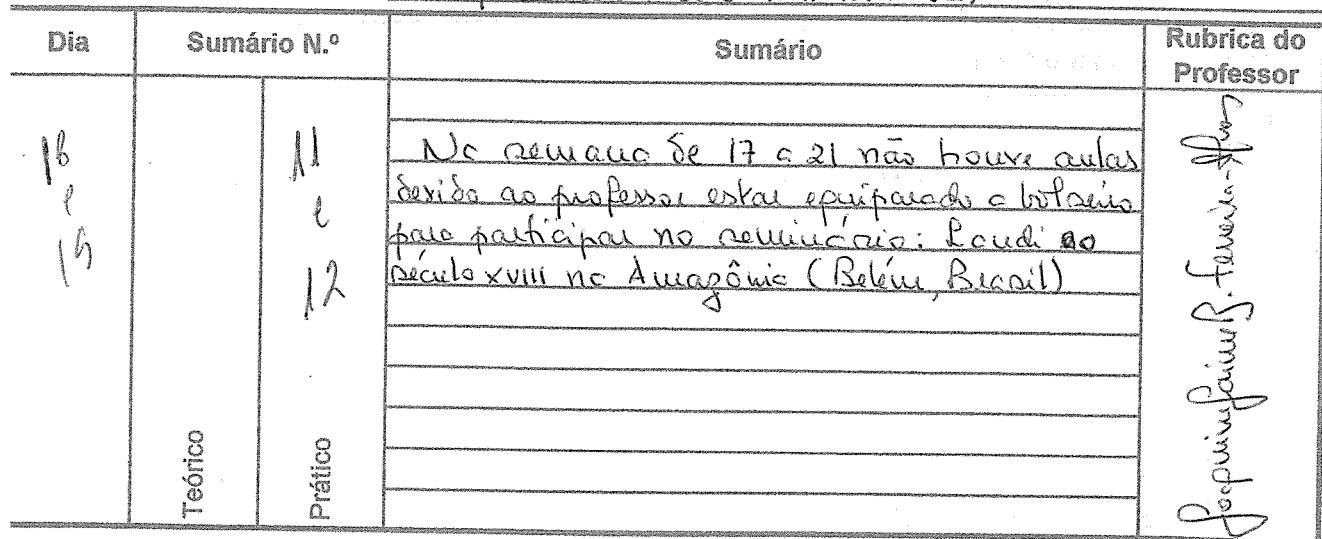 Dia
Sumário N.º
Sumário
Rubrica do
Professor
18
e
19
11
e
12
Na semana de 17 a 21 não houve aulas
devido ao professor estar equiparado a bolseiro
para participar no seminário: Landi ao
século XVIII na Amazônia (Belém, Brasil)
Teórico
Prático
Joaquim Jaime B. Ferreira-Alves